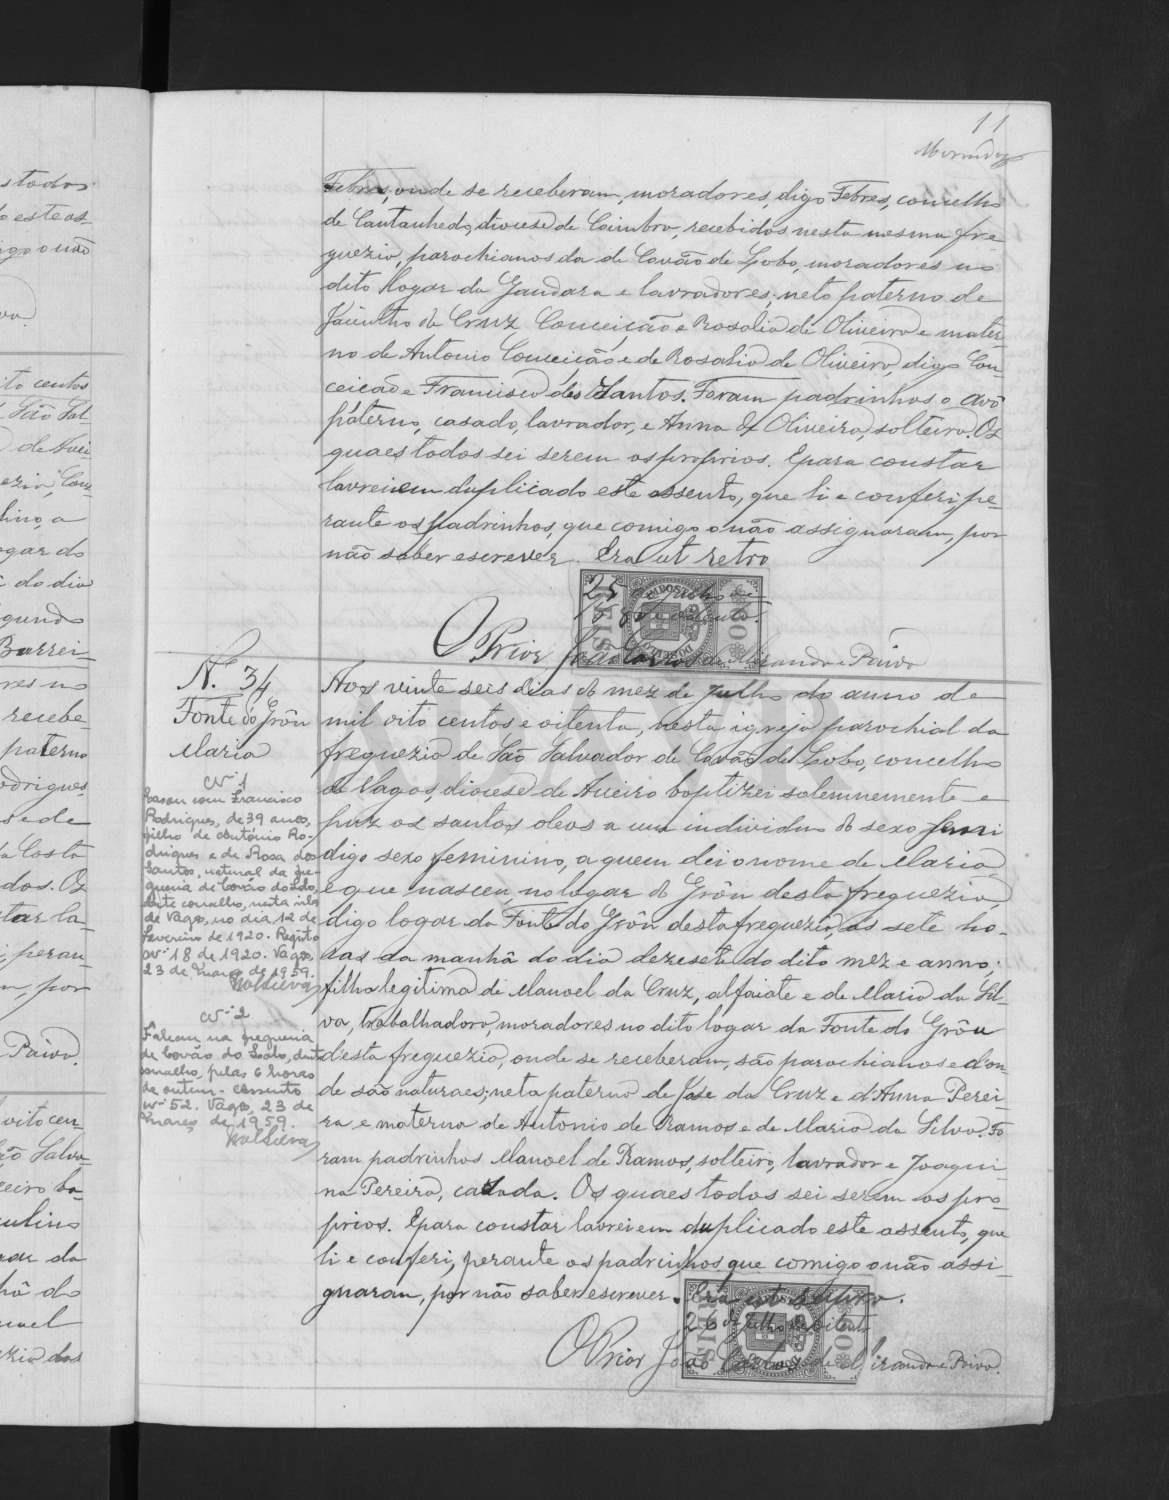 11
Febres, onde se receberam, moradores, digo Febres, concelho
de Cantanhede, diocese de Coimbra, recebidos nesta mesma fre
guezia, parochianos da de Covão do Lobo, moradores no
dito logar da Gandara e lavradores; neto paterno de
Jacintho da Cruz Conceição e Rosalia de Oliveira e mater-
no de Antonio Conceição e de Rosalia de Oliveira, digo Con-
ceição e Francisca dos Santos. Foram padrinhos o avô
paterno, casado, lavrador, e Anna de Oliveira, solteira. Os
quaes todos sei serem os proprios. E para constar
lavrei em duplicado este assento, que li e conferi, pe-
rante os padrinhos, que comigo o não assignaram, por
não saber escrever. Era ut retro
25 de julho de
O Prior João Carlos de Miranda e Paiva
N. 34
Fonte do Grôu
Maria
Nº 1
Casou com Francisco
Rodrigues, de 39 anos,
filho de António Ro-
drigues e de Rosa dos
Santos, natural da fre-
guesia de Covão do Lobo,
deste concelho, nesta vila
de Vagos, no dia 12 de
fevereiro de 1920. Registo
nº 18 de 1920. Vagos,
23 de março de 1959.
Nº 2
Faleceu na freguesia
de Covão do Lobo, deste
concelho, pelas 6 horas
de ontem. Assento
nº 52. Vagos, 23 de
março de 1959.
Aos vinte seis dias do mez de Julho do anno de
mil oito centos e oitenta, nesta igreja parochial da
freguezia de São Salvador de Covão do Lobo, concelho
de Vagos, diocese de Aveiro baptizei solemnemente e
puz os santos oleos a um individuo do sexo femi
digo sexo feminino, a quem dei o nome de Maria
e que nasceu no logar do Grôu desta freguezia,
digo logar da Fonte do Grôu desta freguezia, ás sete ho-
ras da manhã do dia dezesete do dito mez e anno;
filha legitima de Manoel da Cruz, alfaiate e de Maria da Sil-
va, trabalhadora, moradores no dito logar da Fonte do Grôu
d'esta freguezia, onde se receberam, são parochianos e d'on-
de são naturaes; neta paterna de José da Cruz e d'Anna Perei-
ra e materna de Antonio de Ramos e de Maria da Silva. Fo
ram padrinhos Manoel de Ramos, solteiro, lavrador e Joaqui-
na Pereira, casada. Os quaes todos sei serem os pro-
prios. E para constar lavrei em duplicado este assento, que
li e conferi, perante os padrinhos que comigo o não assi-
gnaram, por não saber escrever. Era ut supra.
26 de Julho de oitenta
O Prior João Carlos de Miranda e Paiva.